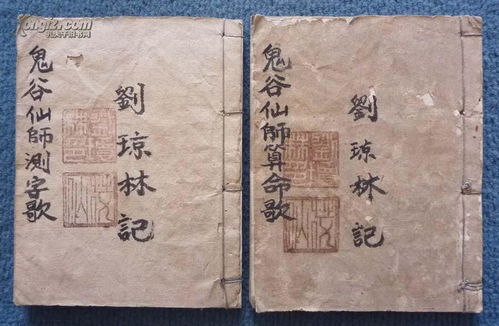 鬼谷仙師測字歌
劉琼林記
鬼谷仙師算命歌
劉琼林記